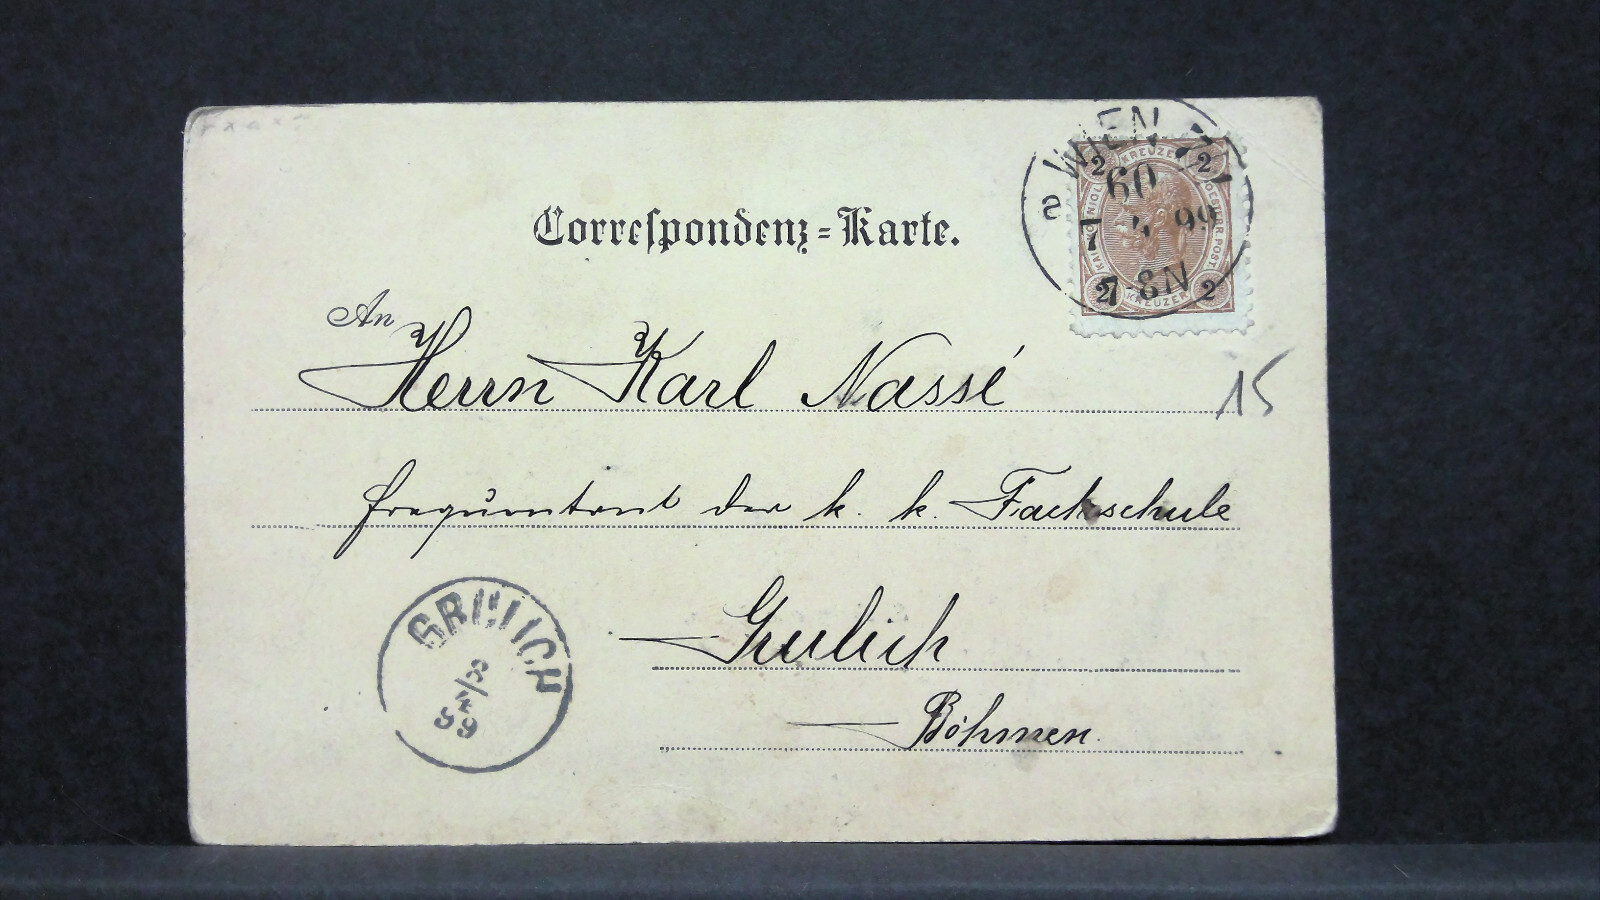 Correspondenz-Karte.
WIEN
60
7 4 99
7-8N
2 KREUZER 2
OESTERR. POST.
2 KREUZER 2
An
Herrn Karl Nassé
15
frequentant der k. k. Fachschule
Grulich
Böhmen.
GRULICH
8/4
99